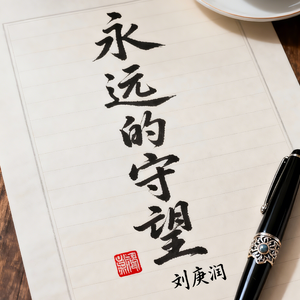 永远的守望
刘庚润